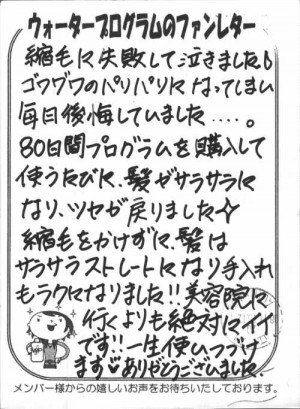 ウォータープログラムのファンレター
縮毛に失敗して泣きました!
ゴワゴワのパリパリになってしまい
毎日後悔していました....。
80日間プログラムを購入して
使うたびに、髪がサラサラに
なり、ツヤが戻りました☆
縮毛をかけずに、髪は
サラサラストレートになり手入れ
もラクになりました!!美容院に
行くよりも絶対にイイ
です!!一生使いつづけ
ます♡ありがとうございました
メンバー様からの嬉しいお声をお待ちいたしております。